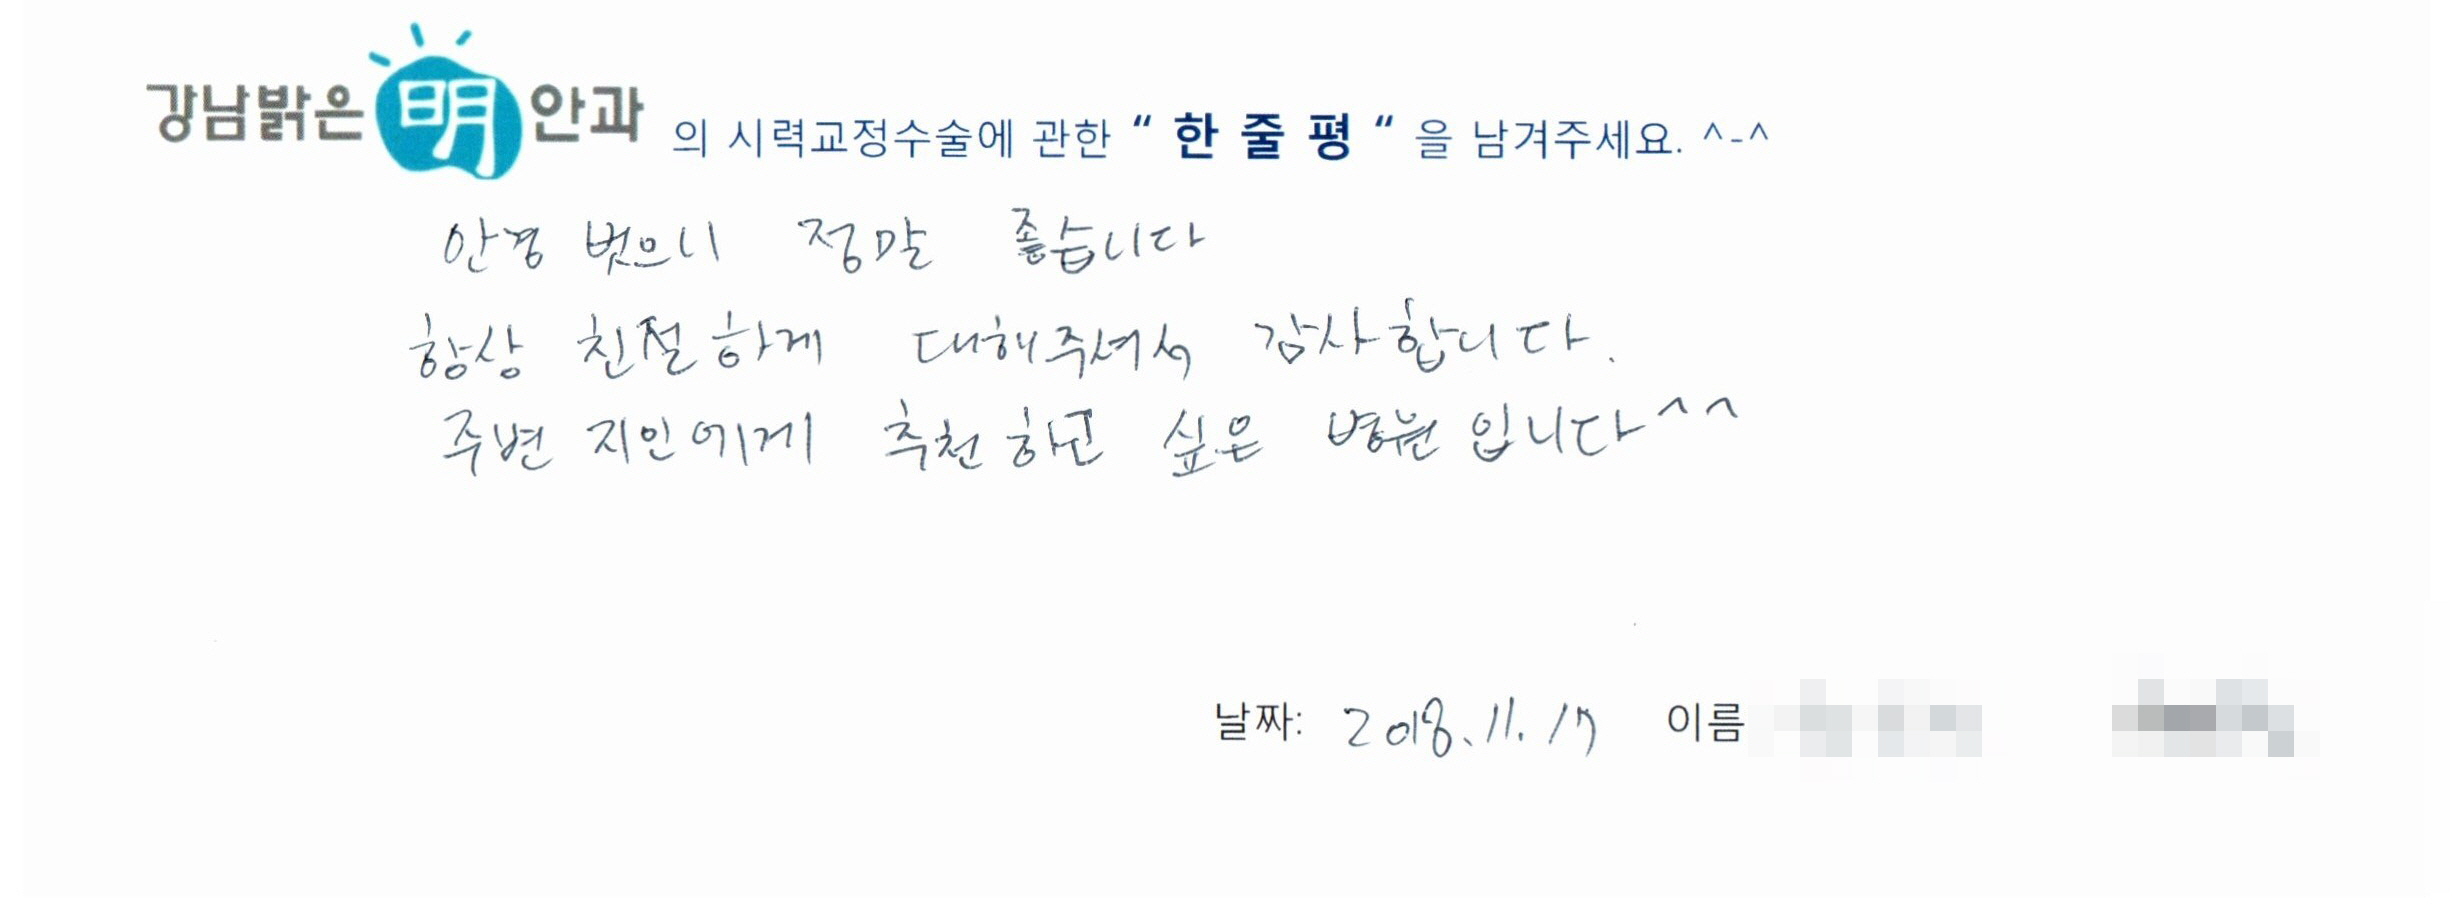 강남밝은 明 안과 의 시력교정수술에 관한 “ 한 줄 평 “ 을 남겨주세요. ^-^
안경 벗으니 정말 좋습니다
항상 친절하게 대해주셔서 감사합니다.
주변 지인에게 추천하고 싶은 병원입니다^^
날짜: 2018.11.17 이름